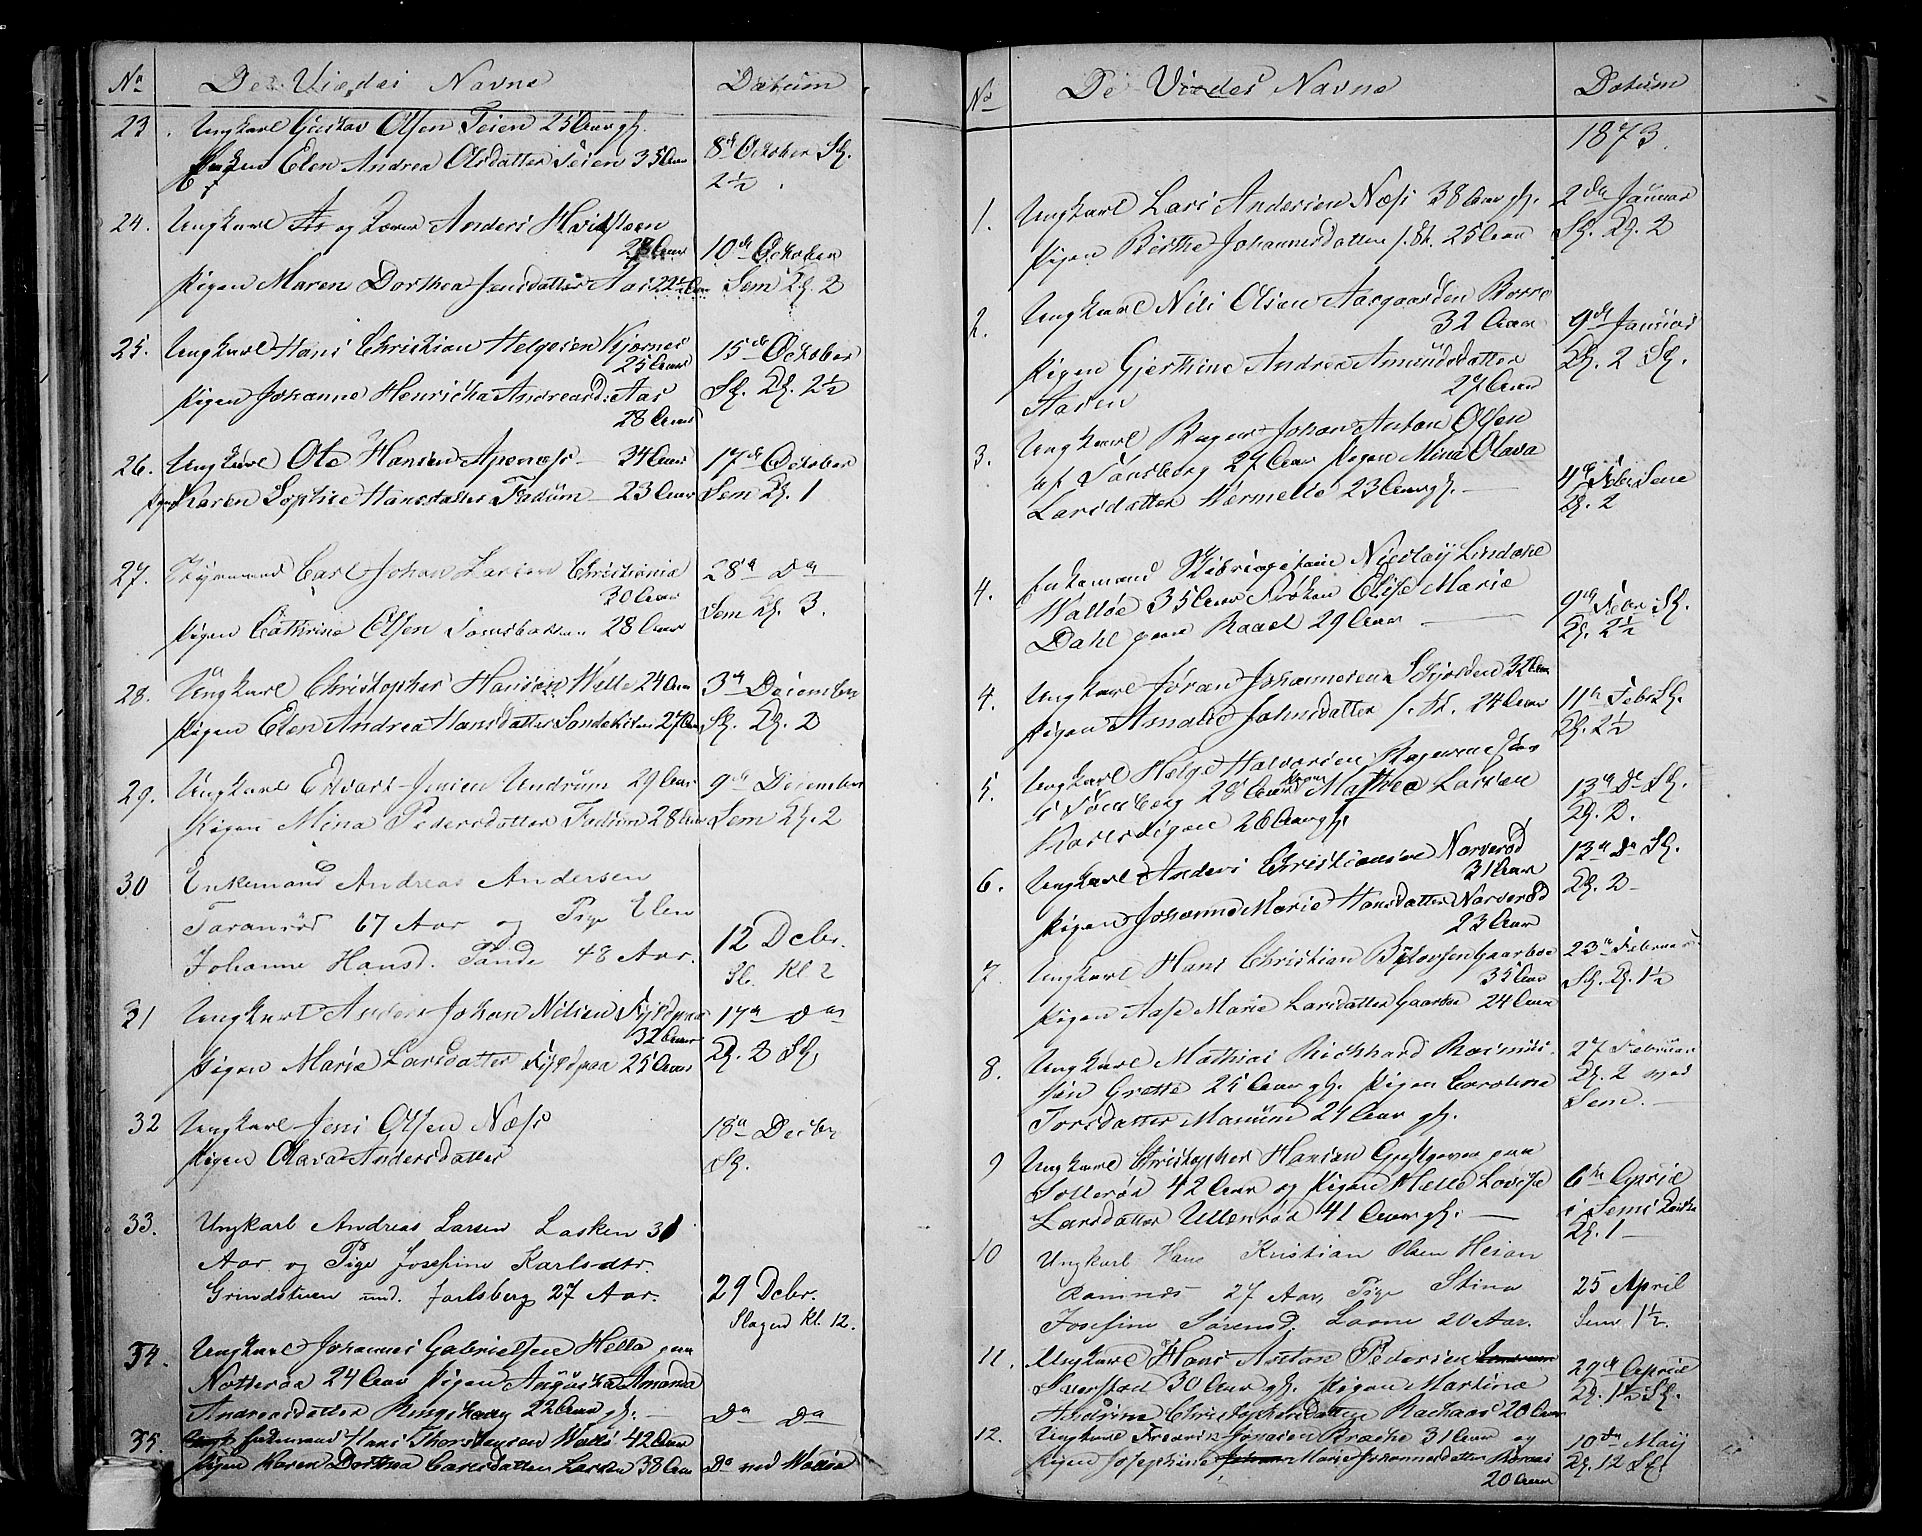 No De Viedes Navne Datum
23. Ungkarl Gustav Olsen Teien 25 Aar gl.
Elen Andrea Olsdatter Teien 35 Aar 8de October Sl.
2½
24. Ungkarl og Anders
28 Aar 10de October
Pigen Maren Dorthea Jensdatter Aas 22½ Aar Sem Kl. 2
25. Ungkarl Hans Christian Helgesen Kjærnes 15de October
25 Aar
Pigen Johanne Henricka Andreasd. Aas Sl. Kl. 2½
28 Aar
26. Ungkarl Ole Hansen Apenæss 34 Aar 17de October
Pigen Karen Sophie Hansdatter Fadum 23 Aar Sem Kl. 1
27. Carl Johan Larsen Christiania 28de Do
30 Aar
Pigen Cathrine Olsen 28 Aar Sem Kl. 3.
28. Ungkarl Christopher Hansen Welle 24 Aar 3de December
Pigen Elen Andrea Hansdatter 27 Aar Sl. Kl. 2
29. Ungkarl Edvart Jensen Undrum 29 Aar 9de December
Pigen Mina Pedersdatter Fadum 28 Aar Sem Kl. 2
30 Enkemand Andreas Andersen
Taranrød 67 Aar og Pige Elen
Johanne Hansd. Sande 48 Aar. 12 Debr.
Sl. Kl 2
31 Ungkarl Anders Johan Nilsen 17de Do
32 Aar
Pigen Marie Larsdatter 25 Aar Kl. 2 Sl.
32 Ungkarl Jens Olsen Næss 18de Decbr
Pigen Olava Andersdatter Sl.
33. Ungkarl Andreas Larsen Lasken 31
Aar og Pige Josefine Karlsdtr.
Grindstuen und. Jarlsberg 27 Aar. 29 Debr.
Slagen Kl. 12.
34. Ungkarl Johannes Gabrielsen Hella paa
Nøtterøe 24 Aar Pigen Augusta Amanda
Andreasdatter Ringshaug 22 Aar gl. Do Do
35. Enkemand Hans Thorstensen Vallø 42 Aar
Pigen Karen Dorthea Carlsdatter Larsen 38 Aar Do ved Valløe
No De Viedes Navne Datum
1873.
1. Ungkarl Lars Andersen Næss 38 Aar gl. 2de Januar
Pigen Berthe Johannesdatter f. St. 25 Aar Sl. Kl. 2
2. Ungkarl Nils Olsen Aasgaarden Borre
32 Aar 9de Januar
Pigen Gjerthine Andrea Amundsdatter Kl. 2 Sl.
27 Aar
3. Ungkarl Bager Johan Anton Olsen
af Tønsberg 27 Aar Pigen Mina Olava
Larsdatter Vermelle 23 Aar gl. 4de Febr Sem
Kl. 2
4. Enkemand Nicolay
Valløe 35 Aar Frøken Elise Marie
Dahl paa Raael 29 Aar 9de Febr Sl.
Kl. 2½
4. Ungkarl Jøran Johannesen 32 Aar
Pigen Amalie Johnsdatter f. St. 24 Aar 11te Febr Sl.
Kl. 2½
5. Ungkarl Helge Halvorsen
i Tønsberg 28 Aar Pigen Mathea Larsen 13de Do Sl.
26 Aar gl. Kl. 2.
6. Ungkarl Anders Christiansen Narverød 13de Do Sl.
31 Aar Kl. 2
Pigen Johanne Marie Hansdatter Narverød
23 Aar
7. Ungkarl Hans Christian Gaarboe 23de Februar
35 Aar
Pigen Aase Marie Larsdatter Gaarboe 24 Aar Sl. Kl. 1½
8. Ungkarl Mathias Rickhard Rasmus- 27 Februar
sen Grette 25 Aar gl. Pigen Caroline Kl. 2 ved
Torsdatter Manum 24 Aar gl. Sem.
9 Ungkarl Christopher Hansen paa
Solterøe 42 Aar og Pigen Helle Lovise 6te April
Larsdatter Ullerøe 41 Aar gl. i Sems Kirke
Kl. 1
10 Ungkarl Hans Kristian Olsen Heian
Ramnes 27 Aar, Pige Stina 25 April
Josefine Sørensd. Lovne 20 Aar. Sem 1½.
11. Ungkarl Hans Anton Pedersen
30 Aar gl. Pigen Martine 29de April
Andrine Christophersdatter 20 Aar Kl. 1½ Sl.
12. Ungkarl Frederik Jonasen Bracke 31 Aar og
Pigen Josephine Marie Johannesdatter 10de May
20 Aar Kl. 12 Sl.